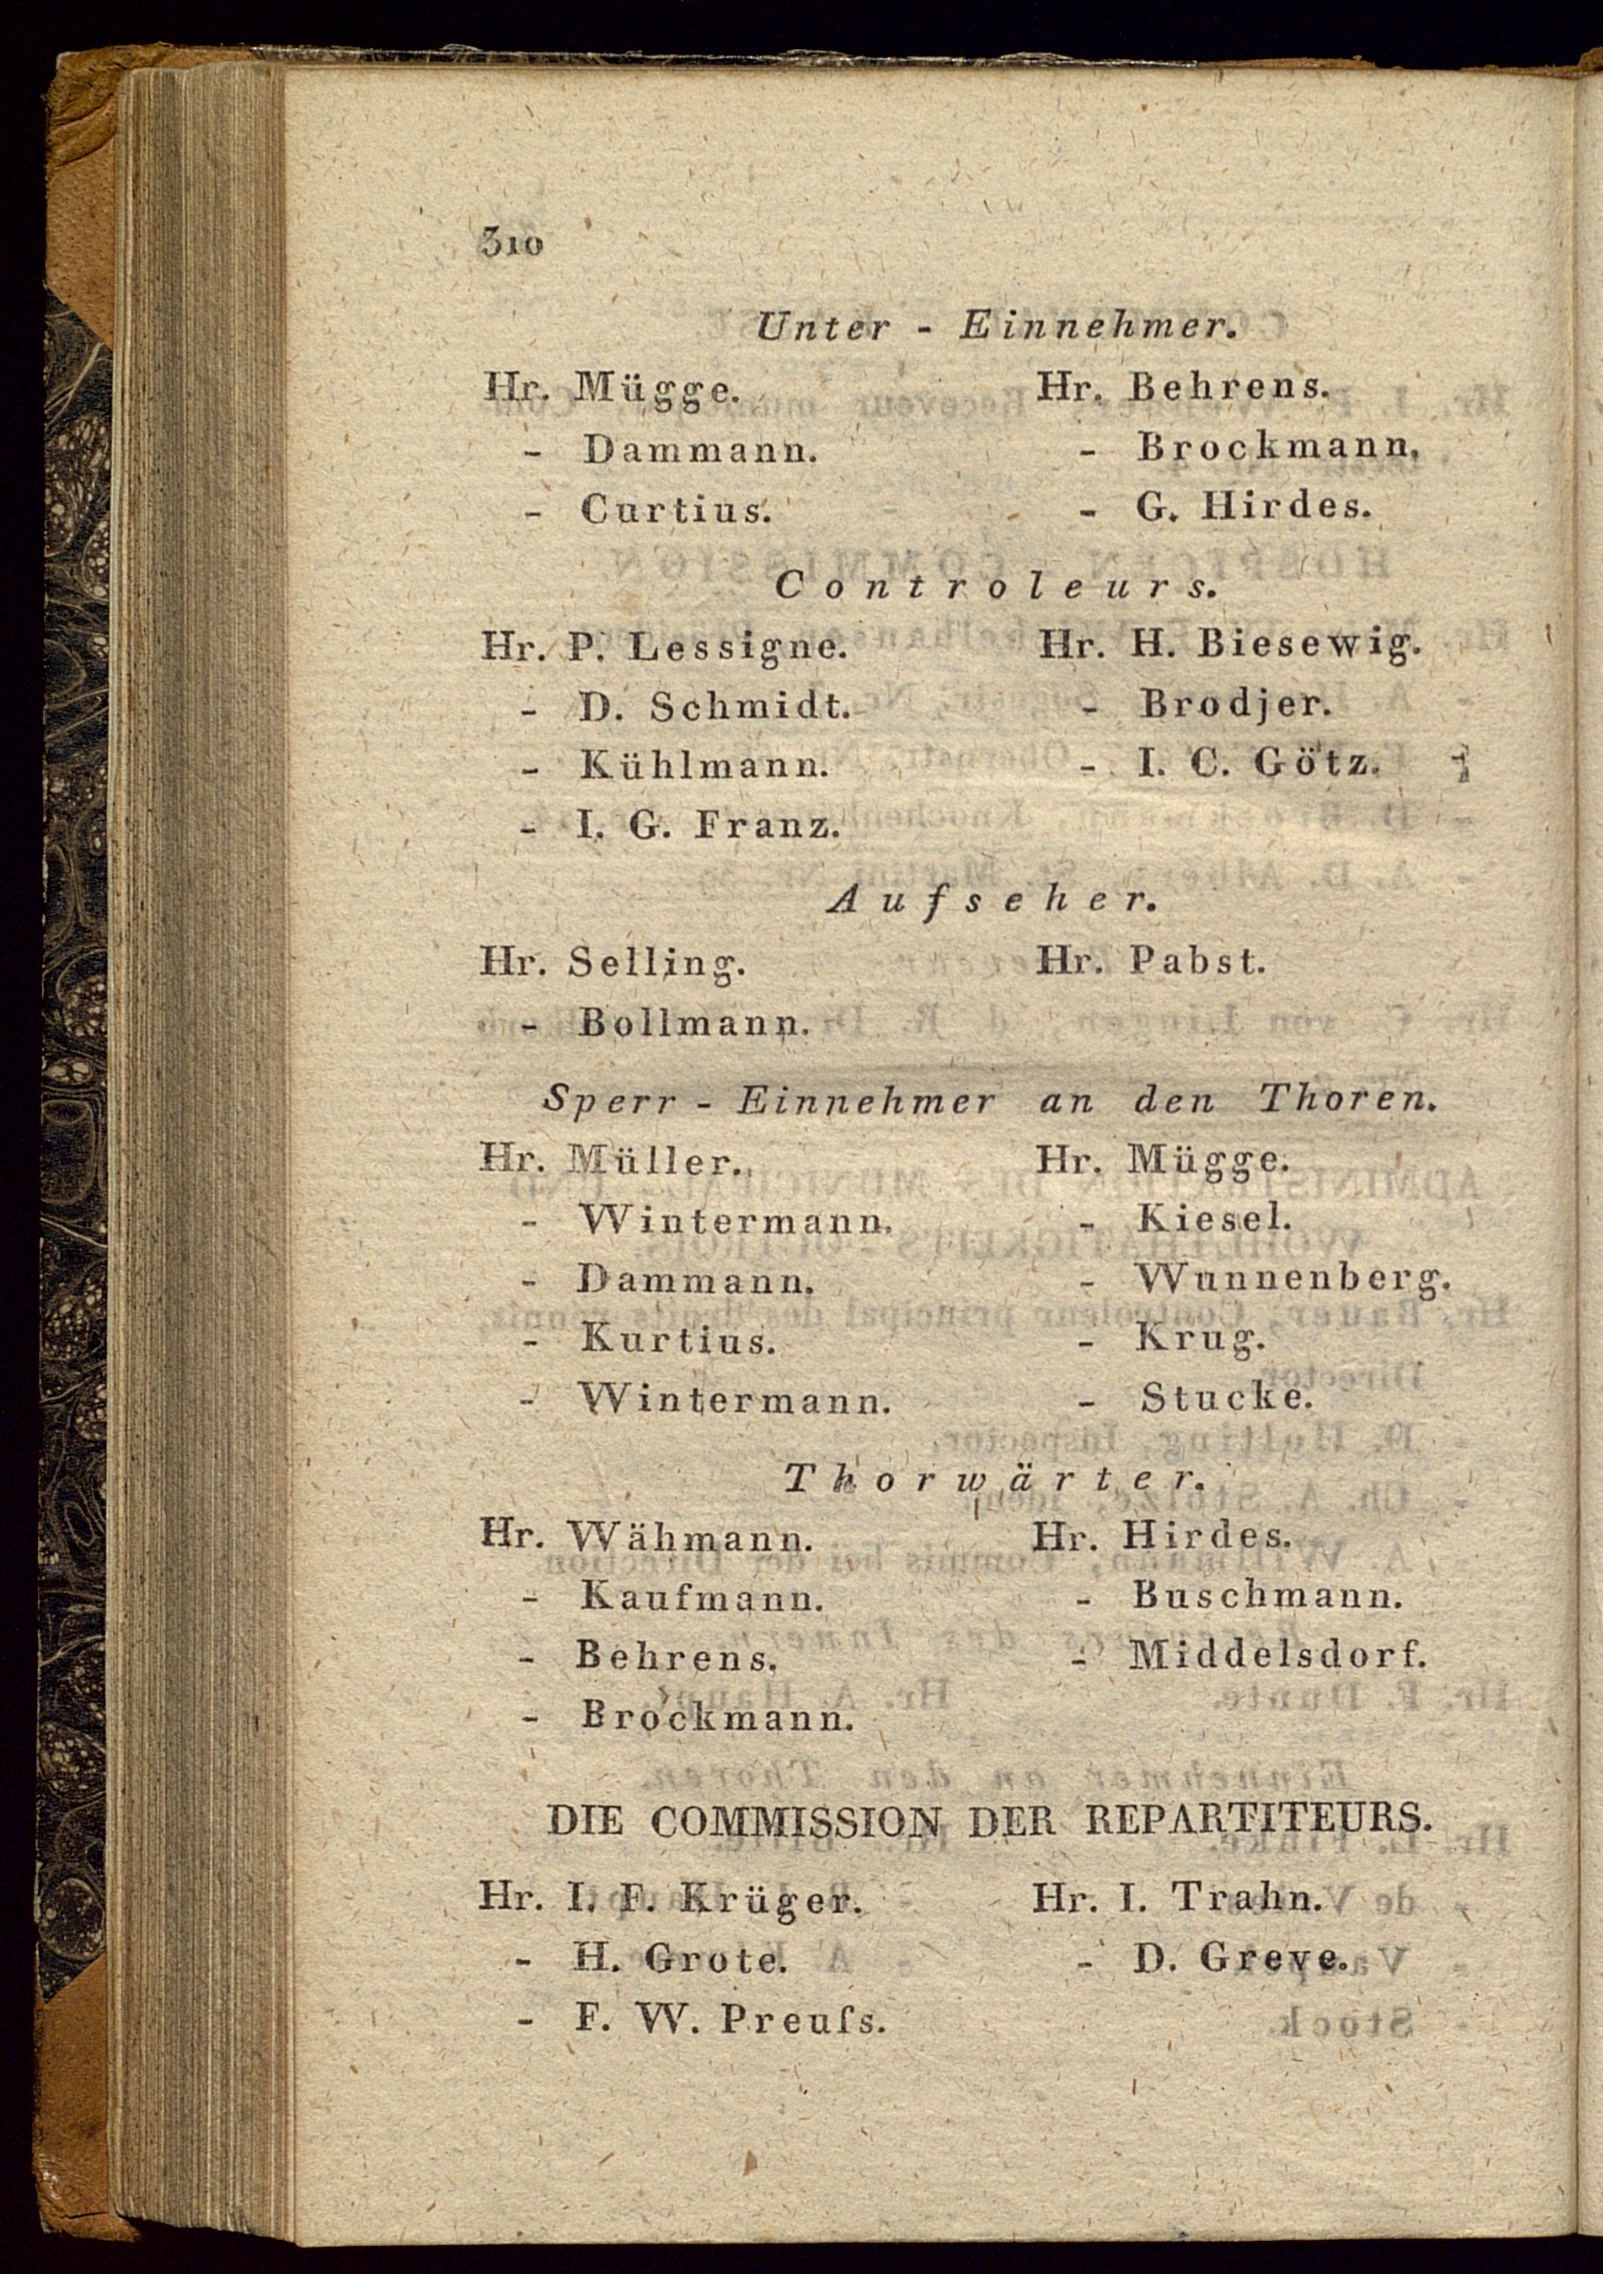 310
Unter - Einnehmer.
Hr. Mügge. Hr. Behrens.
- Dammann. - Brockmann.
- Curtius. - G. Hirdes.
Controleurs.
Hr. P. Lessigne. Hr. H. Biesewig.
- D. Schmidt. - Brodjer.
- Kühlmann. - I. C. Götz.
- I. G. Franz.
Aufseher.
Hr. Selling. Hr. Pabst.
- Bollmann.
Sperr - Einnehmer an den Thoren.
Hr. Müller. Hr. Mügge.
- Wintermann. - Kiesel.
- Dammann. - Wunnenberg.
- Kurtius. - Krug.
- Wintermann. - Stucke.
Thorwärter.
Hr. Wähmann. Hr. Hirdes.
- Kaufmann. - Buschmann.
- Behrens. - Middelsdorf.
- Brockmann.
DIE COMMISSION DER REPARTITEURS.
Hr. I. F. Krüger. Hr. I. Trahn.
- H. Grote. - D. Greve.
- F. W. Preuſs.